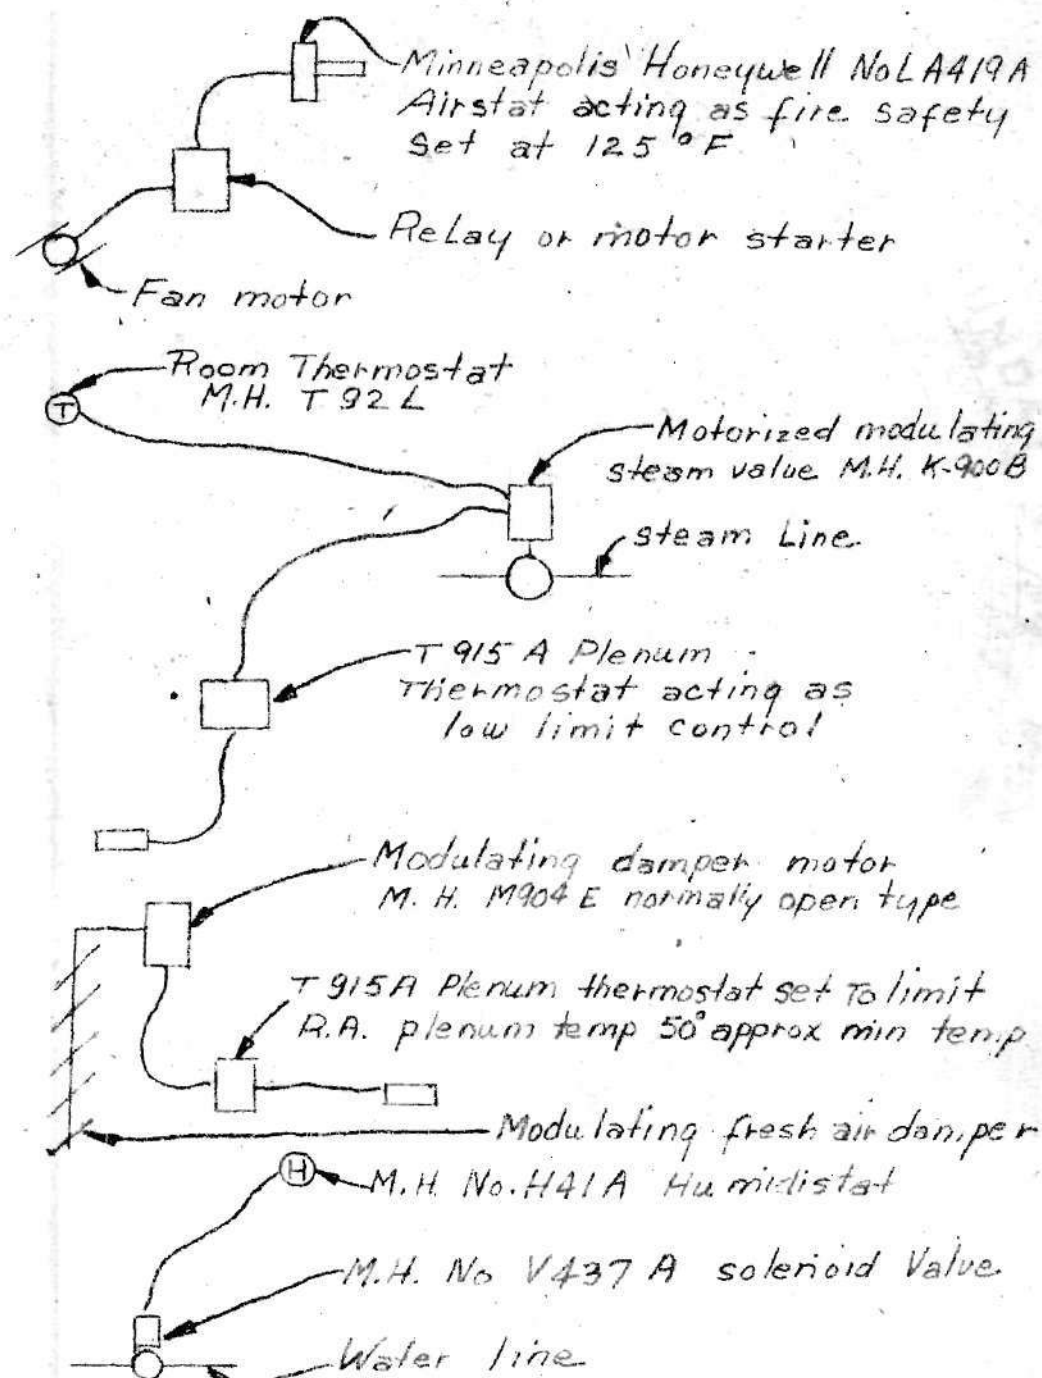 Minneapolis Honeywell No LA419A
Airstat acting as fire safety
Set at 125°F
Relay or motor starter
Fan motor
Room Thermostat
M.H. T92L
T
Motorized modulating
steam value M.H. K-900B
steam Line
T915A Plenum
Thermostat acting as
low limit control
Modulating damper motor
M.H. M904E normally open type
T915A Plenum thermostat set To limit
R.A. plenum temp 50° approx min temp
Modulating fresh air damper
H
M.H. No. H41A Humidistat
M.H. No V437A solenoid Value
Water line